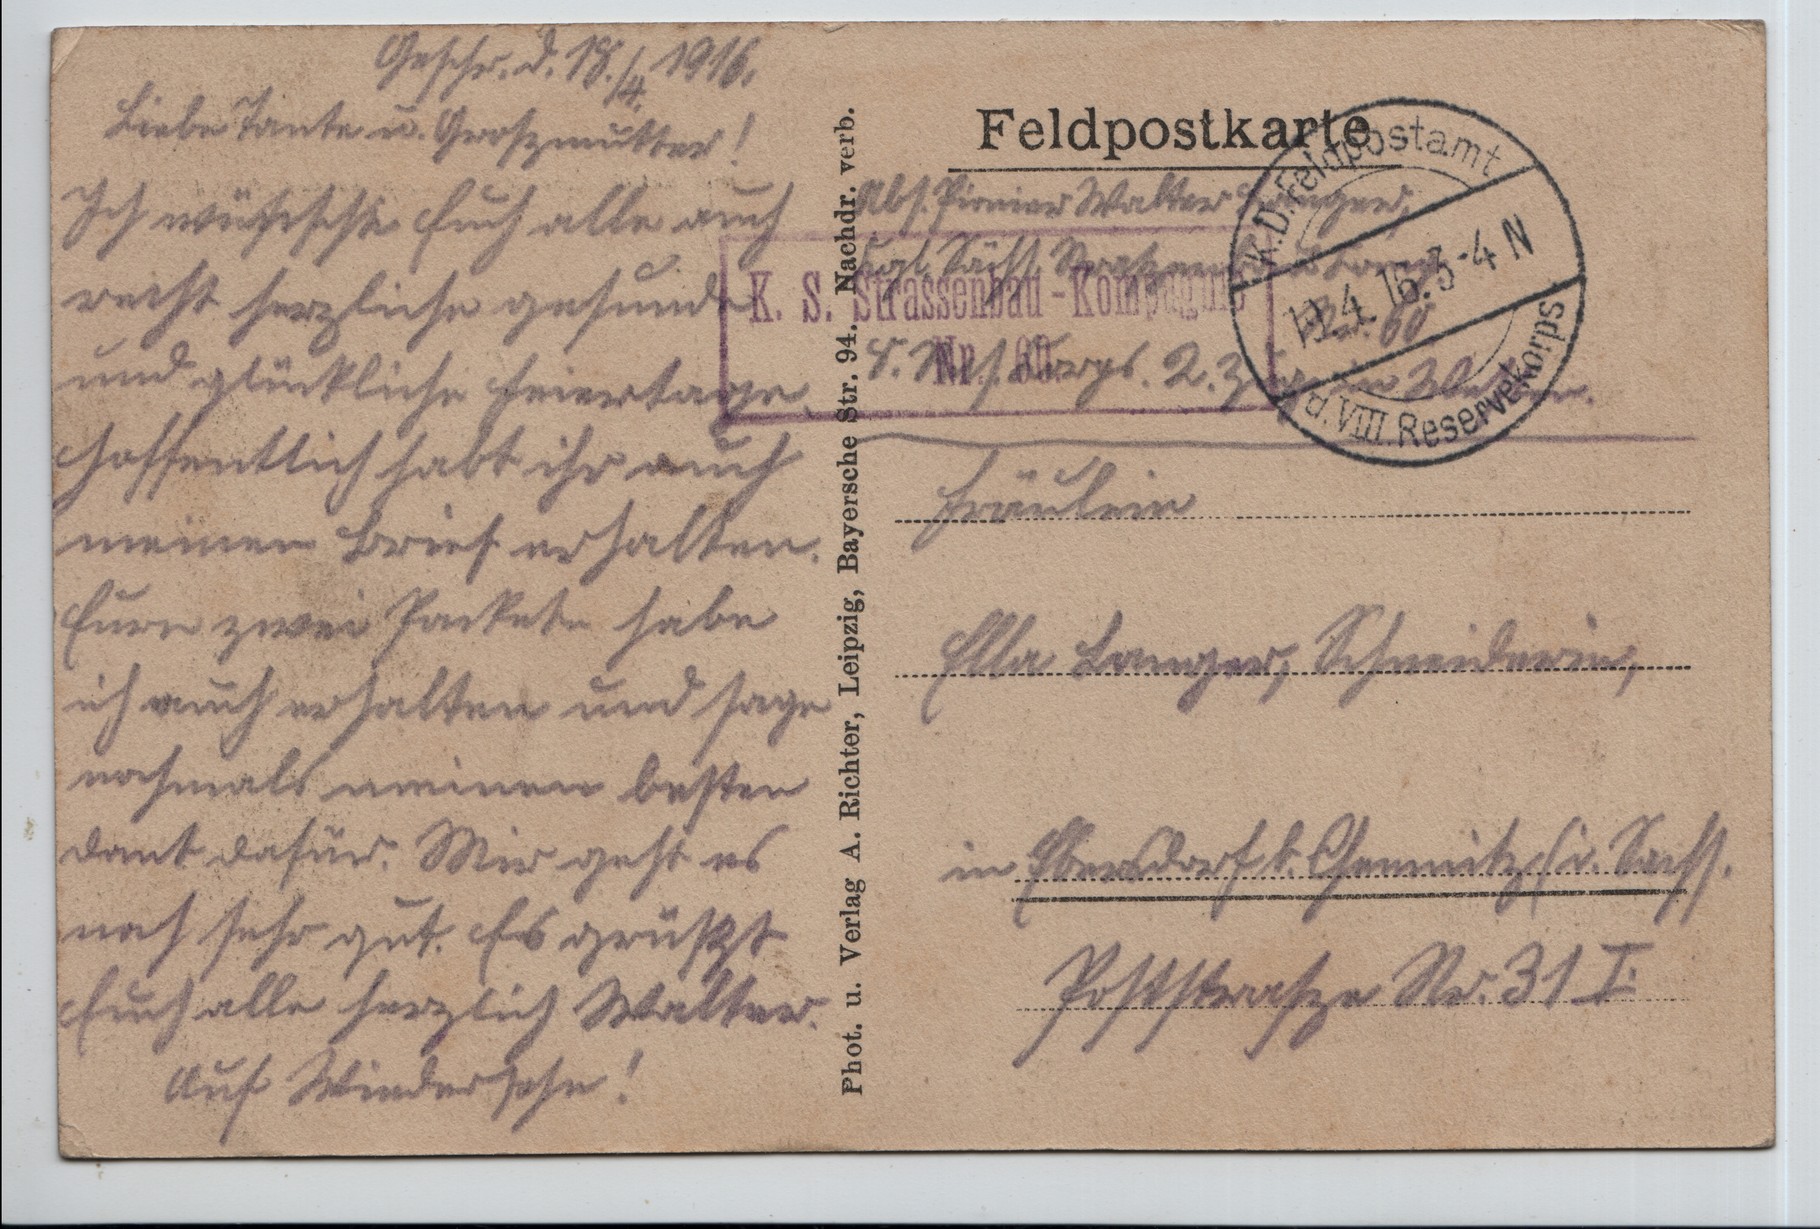 Geschr. d. 18./4. 1916.
Liebe Tante u. Groszmutter!
Ich wünsche Euch alle auch
recht herzliche gesunde
und glückliche Feiertage.
Hoffentlich habt ihr auch
meinen Brief erhalten.
Eure zwei Packete habe
ich auch erhalten und sage
nochmals meinen besten
dank dafür. Mir geht es
noch sehr gut. Es grüszt
Euch alle herzlich Walter.
Auf Wiedersehn!
Phot. u. Verlag A. Richter, Leipzig, Bayersche Str. 94. Nachdr. verb.
Feldpostkarte
Abs. Pionier Walter Langer,
Kgl. Sächs. Straszenbau
Nr. 60
8. Res. Korps. 2. Zug im Westen.
K. S. Strassenbau-Kompagnie
Nr. 60.
K.D. Feldpostamt
19.4.16. 3-4 N
d. VIII. Reservekorps
Fräulein
Ella Langer, Schneiderin,
in Ebersdorf b. Chemnitz i. Sachs.
Poststrasze Nr. 31 I.